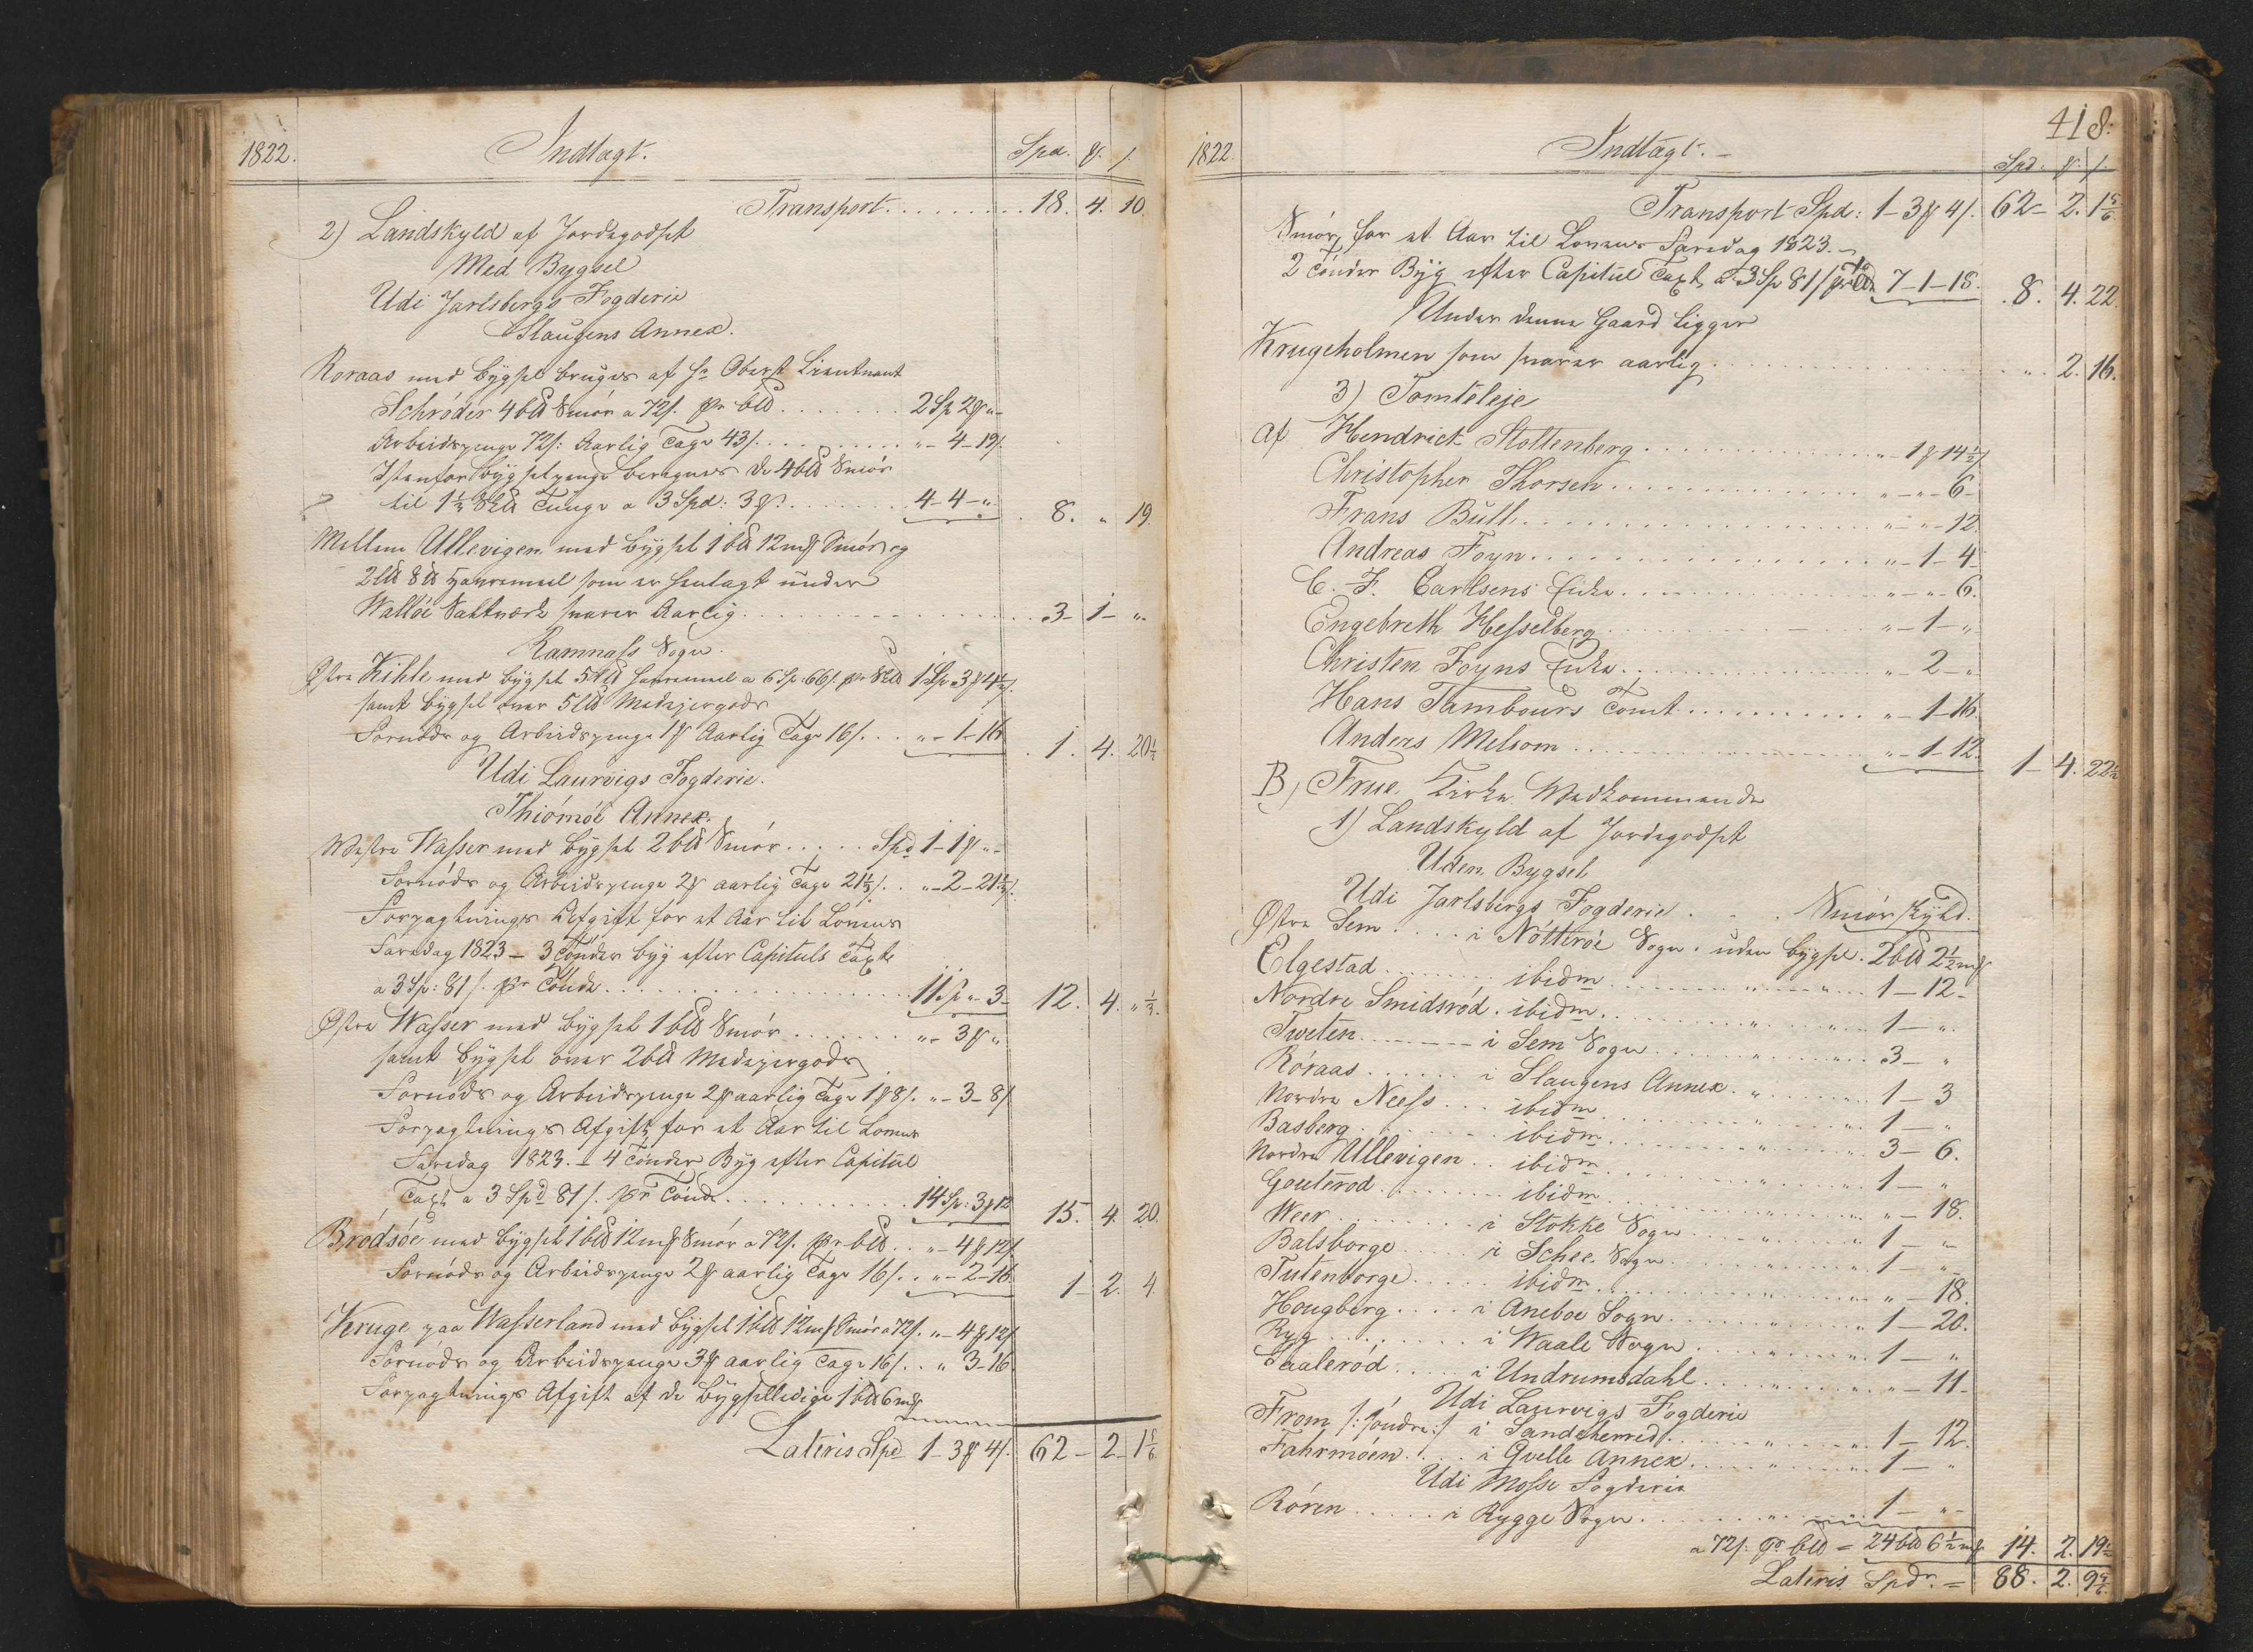 1822. Indtægt. Spd. ß. /.
Transport . . . . . . . . . 18. 4. 10
2) Landskyld af Jordegodset
Med Bygsel
Udi Jarlsbergs Fogderie
Slaugens Annex.
Roraas med bygsel bruges af Hr Oberst Lieutnant
Schröder 4 bld Smör a 72/. pr bld . . . . . . . 2 Sp 2 ß "-
Arbeidspenge 72/: Aarlig Tage 43/. . . . . . . "- 4- 19/.
Istedenfor bygselpenge beregnes de 4 bld Smör
til 1⅓ Skld Tunge a 3 Spd: 3 ß. . . . . . . . 4- 4- ". 8. " 19.
Mellem Ullevigen med bygsel 1 bld 12 mk Smör og
2 ld 8 ld Havremeel som er henlagt under
Walløe Saltværk svarer Aarlig . . . . . . . . 3- 1- "-
Ramnass Sogn.
Østre Kihle med bygsel 5 ld Havremeel a 6 Sp: 66/. pr Skld 1 Sp 3 ß 4½/.
samt bygsel over 5 ld Medejergods
Foruods og Arbeidspenge 1 ß Aarlig Tage 16/. . . "- 1- 16. 1. 4. 20½
Udi Laurvigs Fogderie.
Thiömöe Annex.
Westre Wasser med bygsel 2 bld Smör . . . . . Spd 1- 1 ß "-
Foruöds og Arbeidspenge 2 ß aarlig Tage 21⅓/. . "- 2- 21⅓/.
Forpagtnings Afgift for et Aar til Lonens
Faredag 1823 - 3 Tönder byg efter Capituls Taxte
a 3 Sp: 81/. pr Tönde . . . . . . . . . . 11 Sp "- 3- 12. 4. " ⅓.
Østre Wasser med bygsel 1 bld Smör . . . . . . "- 3 ß "
samt bygsel over 2 bld Medejergods
Foruöds og Arbeidspenge 2 ß aarlig Tage 1 ß 8/. "- 3- 8/
Forpagtnings Afgift for et Aar til Lonens
Faredag 1823. - 4 Tönder Byg efter Capitul
Taxt a 3 Spd 81/. pr Tönde . . . . . . . . 14 Sp: 3 ß 12 15. 4. 20.
Brödsöe med bygsel 1 bld 12 mk Smör a 72/. pr bld . . "- 4 ß 12/.
Foruöds og Arbeidspenge 2 ß aarlig Tage 16/. . "- 2- 16 1- 2. 4.
Kruge paa Wasserland med bygsel 1 bld 12 mk Smör a 72/. "- 4 ß 12/.
Foruöds og Arbeidspenge 3 ß aarlig Tage 16/. . " 3- 16
Forpagtnings Afgift af de bygselledige 1 bld 6 mk
Lateris Spd 1- 3 ß 4/. 62- 2- 1⅚
418.
1822. Indtægt. - Spd. ß. /.
Transport Spd: 1- 3 ß 4/. 62- 2. 1⅚
Smör, for et Aar til Lonens Faredag 1823. -
2 Tönder Byg efter Capitul Taxt a 3 Sp 81/ pr Tde 7- 1- 18. 8. 4. 22.
Under denne Gaard ligger
Krugeholmen som svarer aarlig . . . . . . . . ". 2. 16.
3) Tomteleje
Af Hendrick Stoltenberg . . . . . . . . "- 1 ß 14½/.
Christopher Thorsen . . . . . . . . "- "- 6-
Frans Bull . . . . . . . . "- "- 12.
Andreas Foyn . . . . . . . . "- 1- 4-
C. F. Carlsens Enke . . . . . . . . "- "- 6.
Engebreth Hesselberg . . . . . . . . "- 1- "-
Christen Foyns Enke . . . . . . . . "- 2- "-
Hans Tambours Tomt . . . . . . . . "- 1- 16.
Anders Melsom . . . . . . . . "- 1- 12. 1- 4. 22½
B) Frue Kirke Vedkommende
1) Landskyld af Jordegodset
Uden Bygsel
Udi Jarlsbergs Fogderie . . . Smörskyld.
Østre Sem . . . . i Nötteröe Sogn. uden bygsel. 2 bld 2½ mk
Elgestad . . . . . ibidm . . . . . . " . . . " . . 1- 12-
Nordre Smidsröd. ibidm . . . . . . " . . . " . . 1- ".
Tweten . . . . . i Sem Sogn . . . . . . " . . . " . . 3- "
Röraas . . . . . i Slaugens Annex. " . . . . . 1- 3
Nordre Neess . . . ibidm . . . . . . " . . . " . . 1- "
Basberg . . . . . ibidm . . . . . . " . . . " . . 3- 6.
Nordre Ullevigen . . ibidm . . . . . . " . . . " . . 1- "
Gouteröd . . . . . ibidm . . . . . . " . . . " . . "- 18.
Weer . . . . . i Stokke Sogn . . . . " . . . " . . 1- "-
Balsborge . . . . i Schee Sogn . . . . " . . . " . . 1- "-
Tutenborge . . . . ibidm . . . . . . " . . . " . . "- 18.
Hougberg . . . . i Aneboe Sogn . . . . " . . . " . . 1- 20.
Ryg . . . . . i Waale Sogn . . . . " . . . " . . 1- "
Saaleröd . . . . i Undrumsdahl . . . . " . . . " . . "- 11-
Udi Laurvigs Fogderie
From /: söndre :/ i Sandeherred . . . . " . . . " . . 1- 12.
Fahrmöen . . . i Qvelle Annex . . . . " . . . " . . 1- "
Udi Mosse Fogderie
Rören . . . . . i Rygge Sogn . . . . " . . . 1- "-
a 72/. pr bld = 24 bld 6½ mk 14. 2. 19½
Lateris Spdr. = 88. 2. 9⅚.